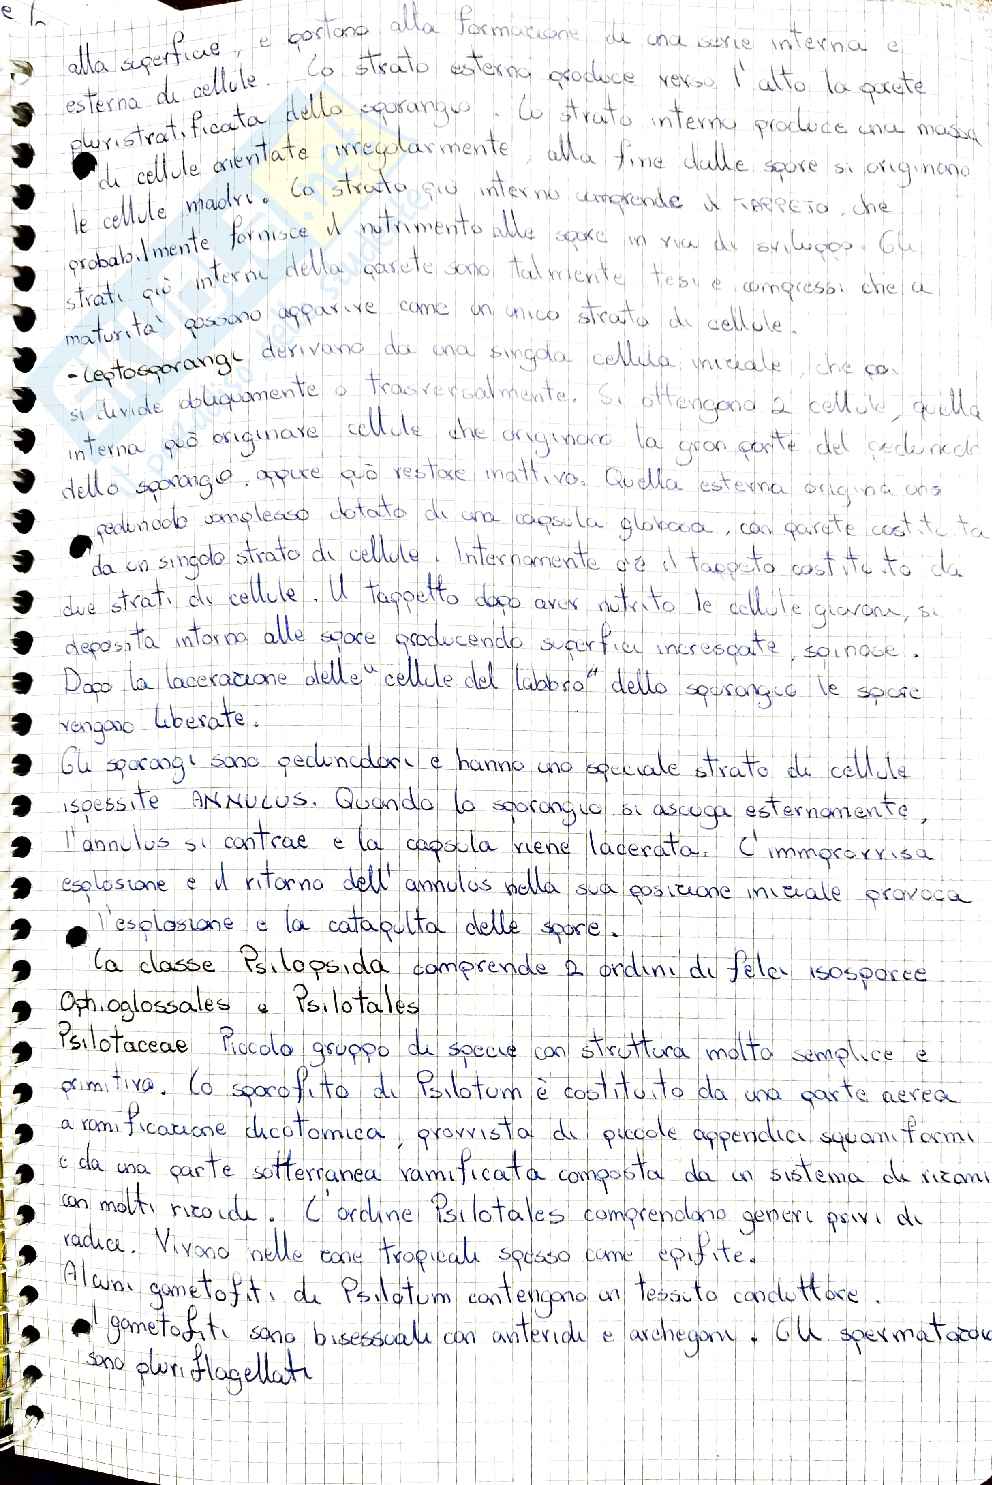 e l
alla superficie, e portano alla formazione di una serie interna e
esterna di cellule. Lo strato esterno produce verso l'alto la parete
pluristratificata dello sporangio. Lo strato interno produce una massa
di cellule orientate irregolarmente, alla fine dalle spore si originano
le cellule madri. Lo strato più interno comprende il TAPPETO, che
probabilmente fornisce il nutrimento alle spore in via di sviluppo. Gli
strati più interni della parete sono talmente tesi e compressi che a
maturità possono apparire come un unico strato di cellule.
- Leptosporangi derivano da una singola cellula iniziale, che poi
si divide obliquamente o trasversalmente. Si ottengono 2 cellule, quella
interna può originare cellule che originano la gran parte del peduncolo
dello sporangio, oppure può restare inattiva. Quella esterna origina uno
peduncolo complesso dotato di una capsula globosa, con parete costituita
da un singolo strato di cellule. Internamente c'è il tappeto costituito da
due strati di cellule. Il tappetto dopo aver nutrito le cellule giovani, si
deposita intorno alle spore producendo superfici increspate, spinose.
Dopo la lacerazione delle "cellule del labbro" dello sporangio le spore
vengono liberate.
Gli sporangi sono peduncolari e hanno uno speciale strato di cellule
ispessite ANNULUS. Quando lo sporangio si asciuga esternamente,
l'annulus si contrae e la capsula viene lacerata. L'improvvisa
esplosione e il ritorno dell'annulus nella sua posizione iniziale provoca
l'esplosione e la catapulta delle spore.
La classe Psilopsida comprende 2 ordini di felci isosporee
Ophioglossales e Psilotales
Psilotaceae Piccolo gruppo di specie con struttura molto semplice e
primitiva. Lo sporofito di Psilotum è costituito da una parte aerea
a ramificazione dicotomica, provvista di piccole appendici squamiformi
e da una parte sotterranea ramificata composta da un sistema di rizomi
con molti rizoidi. L'ordine Psilotales comprendono generi privi di
radici. Vivono nelle zone tropicali spesso come epifite.
Alcuni gametofiti di Psilotum contengono un tessuto conduttore.
I gametofiti sono bisessuali con anteridi e archegoni. Gli spermatozoi
sono pluriflagellati